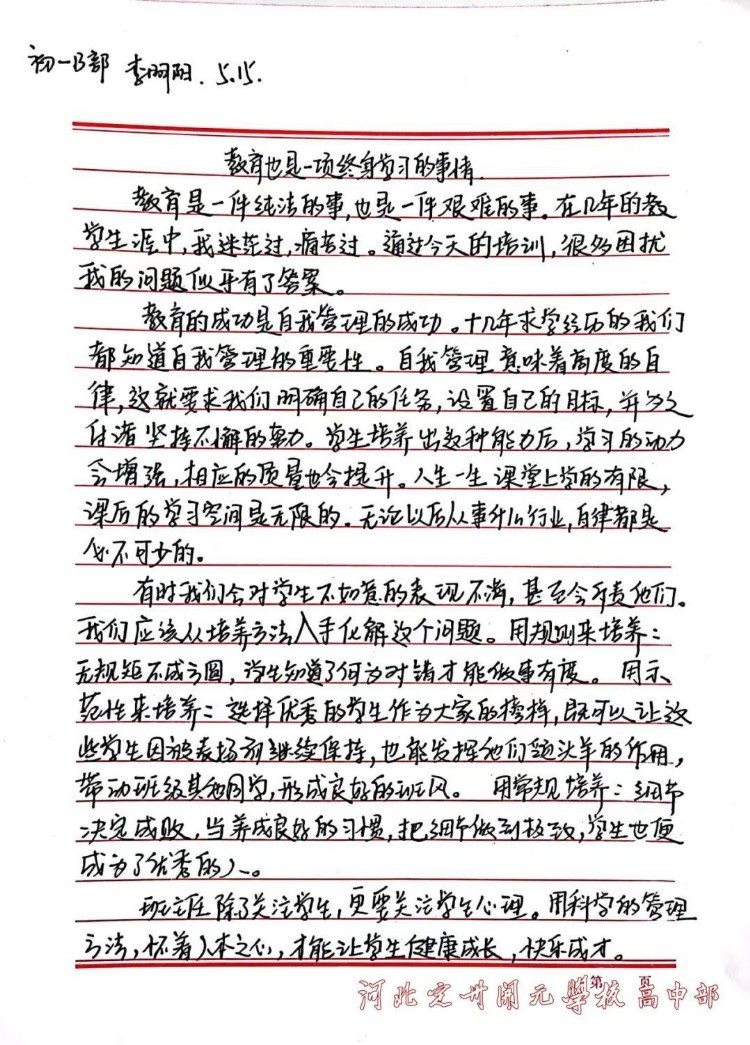 初一B部 李明阳. 5.15.
教育也是一项终身学习的事情.
教育是一件纯洁的事,也是一件艰难的事。在几年的教
学生涯中,我迷茫过,痛苦过。通过今天的培训,很多困扰
我的问题似乎有了答案。
教育的成功是自我管理的成功。十几年求学经历的我们
都知道自我管理的重要性。自我管理意味着高度的自
律,这就要求我们明确自己的任务,设置自己的目标,并为之
付诸坚持不懈的努力。学生培养出这种能力后,学习的动力
会增强,相应的质量也会提升。人生一生课堂上学的有限,
课后的学习空间是无限的。无论以后从事什么行业,自律都是
必不可少的。
有时我们会对学生不如意的表现不满,甚至会斥责他们。
我们应该从培养方法入手化解这个问题。用规则来培养:
无规矩不成方圆,学生知道了何为对错才能做事有度。 用示
范性来培养:选择优秀的学生作为大家的榜样,既可以让这
些学生因被表扬而继续保持,也能发挥他们领头羊的作用,
带动班级其他同学,形成良好的班风。 用常规培养:细节
决定成败,当养成良好的习惯,把细节做到极致,学生也便
成为了优秀的人。
班主任除了关注学生,更要关注学生心理。用科学的管理
方法,怀着人本之心,才能让学生健康成长,快乐成才。
第 页
河北定州开元学校高中部